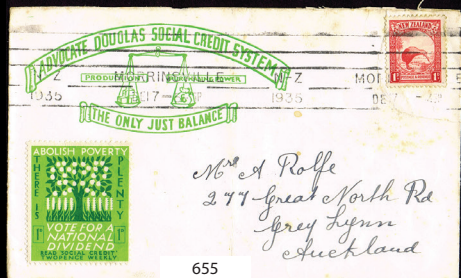 ADVOCATE DOUGLAS SOCIAL CREDIT SYSTEM
PRODUCTION
POWER
THE ONLY JUST BALANCE
N-Z MORRINSVILLE N-Z
1935 DE 17 1935
NEW ZEALAND
1D 1D
ABOLISH POVERTY
THERE IS
PLENTY
1D 1D
VOTE FOR A
NATIONAL
DIVIDEND
READ SOCIAL CREDIT
TWOPENCE WEEKLY
Mrs A Rolfe
277 Great North Rd
Grey Lynn
Auckland
655